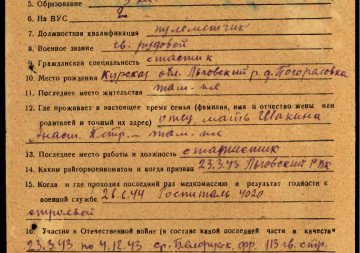 5. Образование
6. На ВУС 2
7. Должностная квалификация пулеметчик
8. Военное звание гв. рядовой
9. Гражданская специальность
10. Место рождения Курская обл. Льговский р. д.
11. Последнее место жительства там-же
12. Где проживает в настоящее время семья (фамилия, имя и отчество жены или
родителей и точный их адрес) отец, мать Шакина
Анаст. Петр. – там-же
13. Последнее место работы и должность
14. Каким райгорвоенкоматом и когда призван 23.3.43 Льговский РВК
15. Когда и где проходил последний раз медкомиссию и результат годности к
военной службе 26.6.44 Госпиталь 4020
строевой
16. Участие в Отечественной войне (в составе какой последней части и качестве
23.3.43 по 4.12.43 Белорусск. фр. 113 гв. стр.